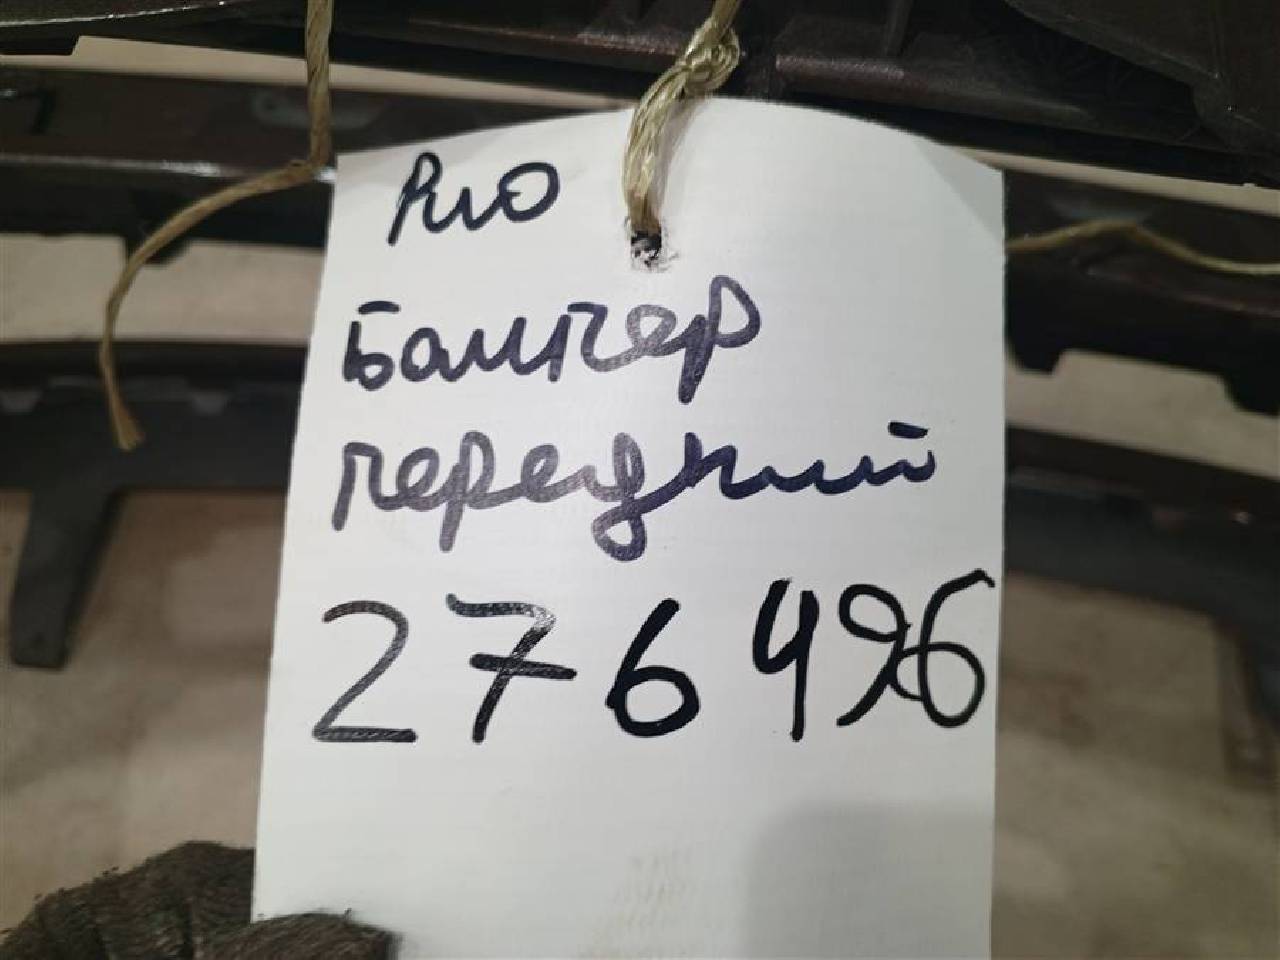 Rio
Бампер
передний
276496